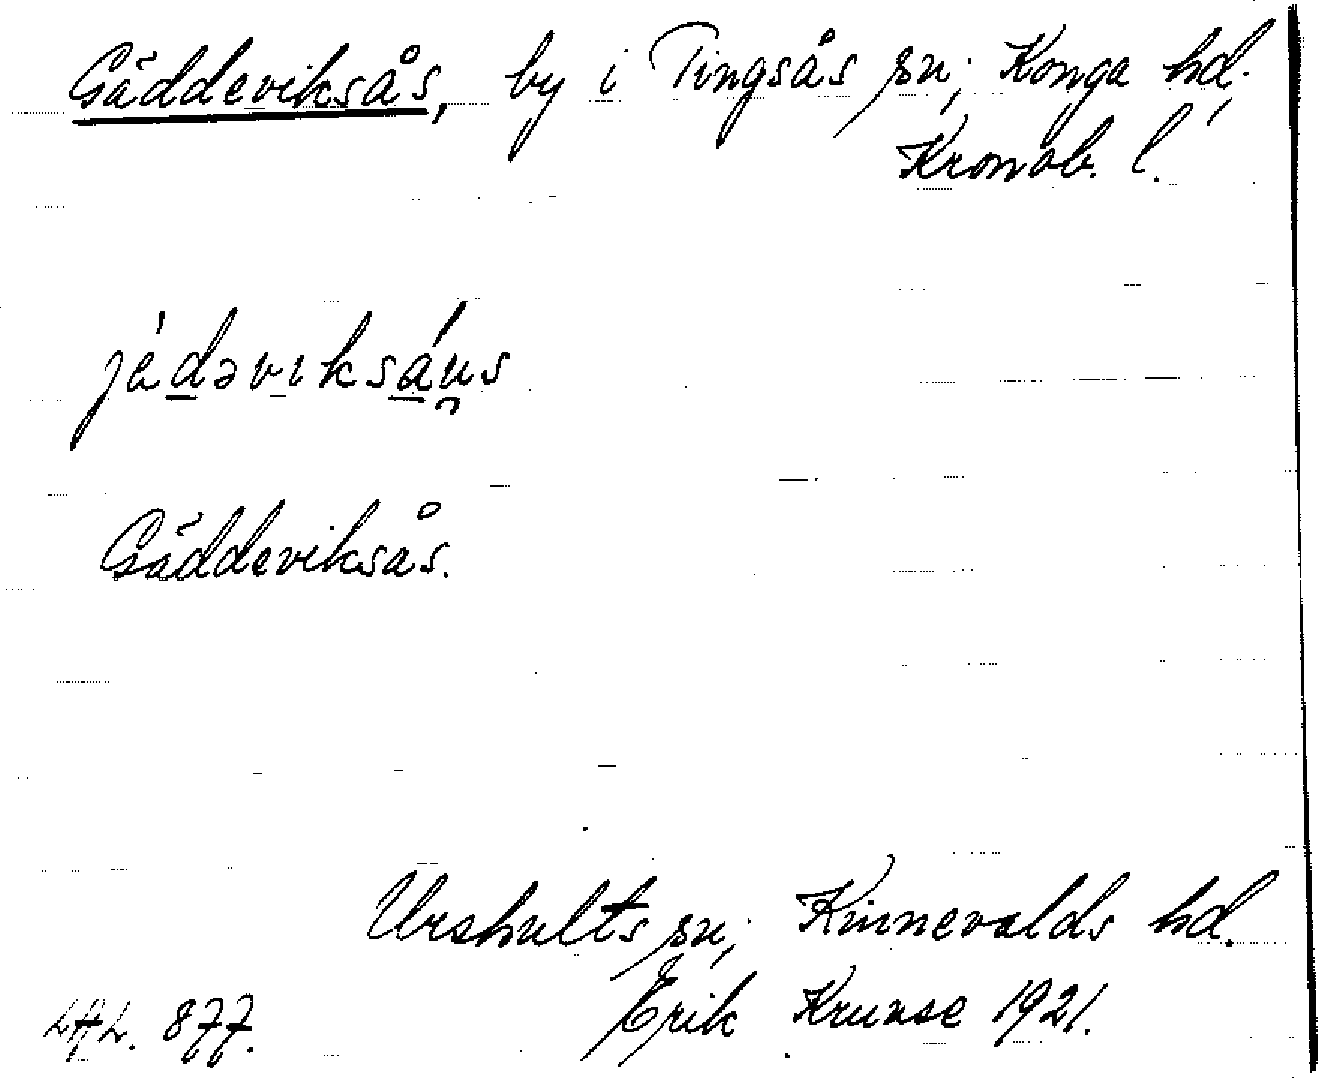 Gäddeviksås, by i Tingsås sn; Konga hd.
Kronob. l.
jèdəvıksáu̯s
Gäddeviksås.
Urshults sn; Kinnevalds hd.
LAL. 877. Erik Kruuse 1921.